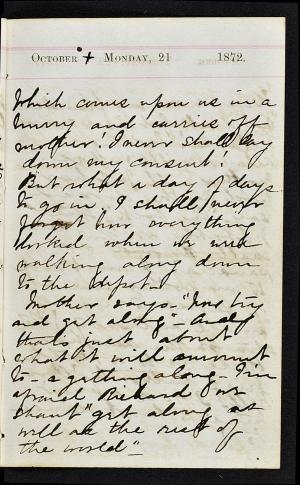 October + Monday, 21 1872.
Which comes upon us in a
hurry and carries off
mother! I never shall lay
down my consent!
But what a day of days
to go in. I shall never
forget how everything
looked when we were
walking along down
to the depot.
Mother says - "
and get along" - And
thats just about
what it will amount
to - a getting along. I'm
afraid Richard and
shant "get along as
well as the rest of
the world" -